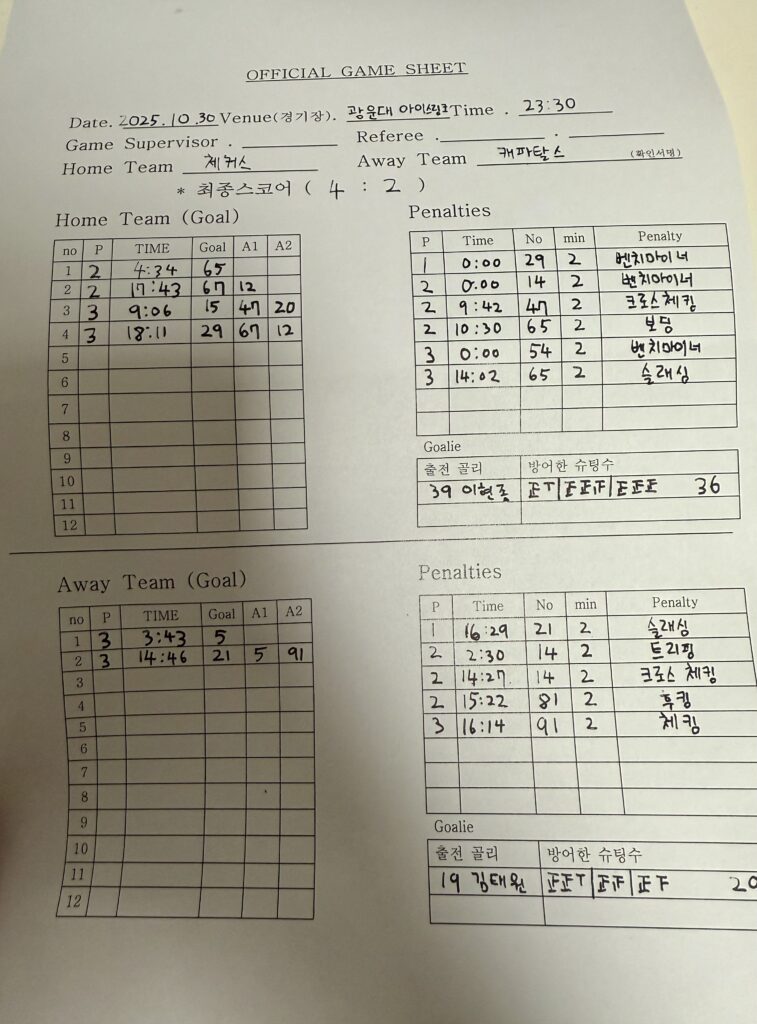 OFFICIAL GAME SHEET
Date. 2025.10.30 Venue(경기장). 광운대 아이스링크 Time . 23:30
Game Supervisor . Referee . .
Home Team 체커스 Away Team 캐피탈스 (확인서명)
* 최종스코어 ( 4 : 2 )
Home Team (Goal)
no P TIME Goal A1 A2
1 2 4:34 65
2 2 17:43 67 12
3 3 9:06 15 47 20
4 3 18:11 29 67 12
5
6
7
8
9
10
11
12
Penalties
P Time No min Penalty
1 0:00 29 2 벤치마이너
2 0:00 14 2 벤치마이너
2 9:42 47 2 크로스체킹
2 10:30 65 2 보딩
3 0:00 54 2 벤치마이너
3 14:02 65 2 슬래싱
Goalie
출전 골리 방어한 슈팅수
39 이현종 36
Away Team (Goal)
no P TIME Goal A1 A2
1 3 3:43 5
2 3 14:46 21 5 91
3
4
5
6
7
8
9
10
11
12
Penalties
P Time No min Penalty
1 16:29 21 2 슬래싱
2 2:30 14 2 트리핑
2 14:27 14 2 크로스 체킹
2 15:22 81 2 후킹
3 16:14 91 2 체킹
Goalie
출전 골리 방어한 슈팅수
19 김태원 20